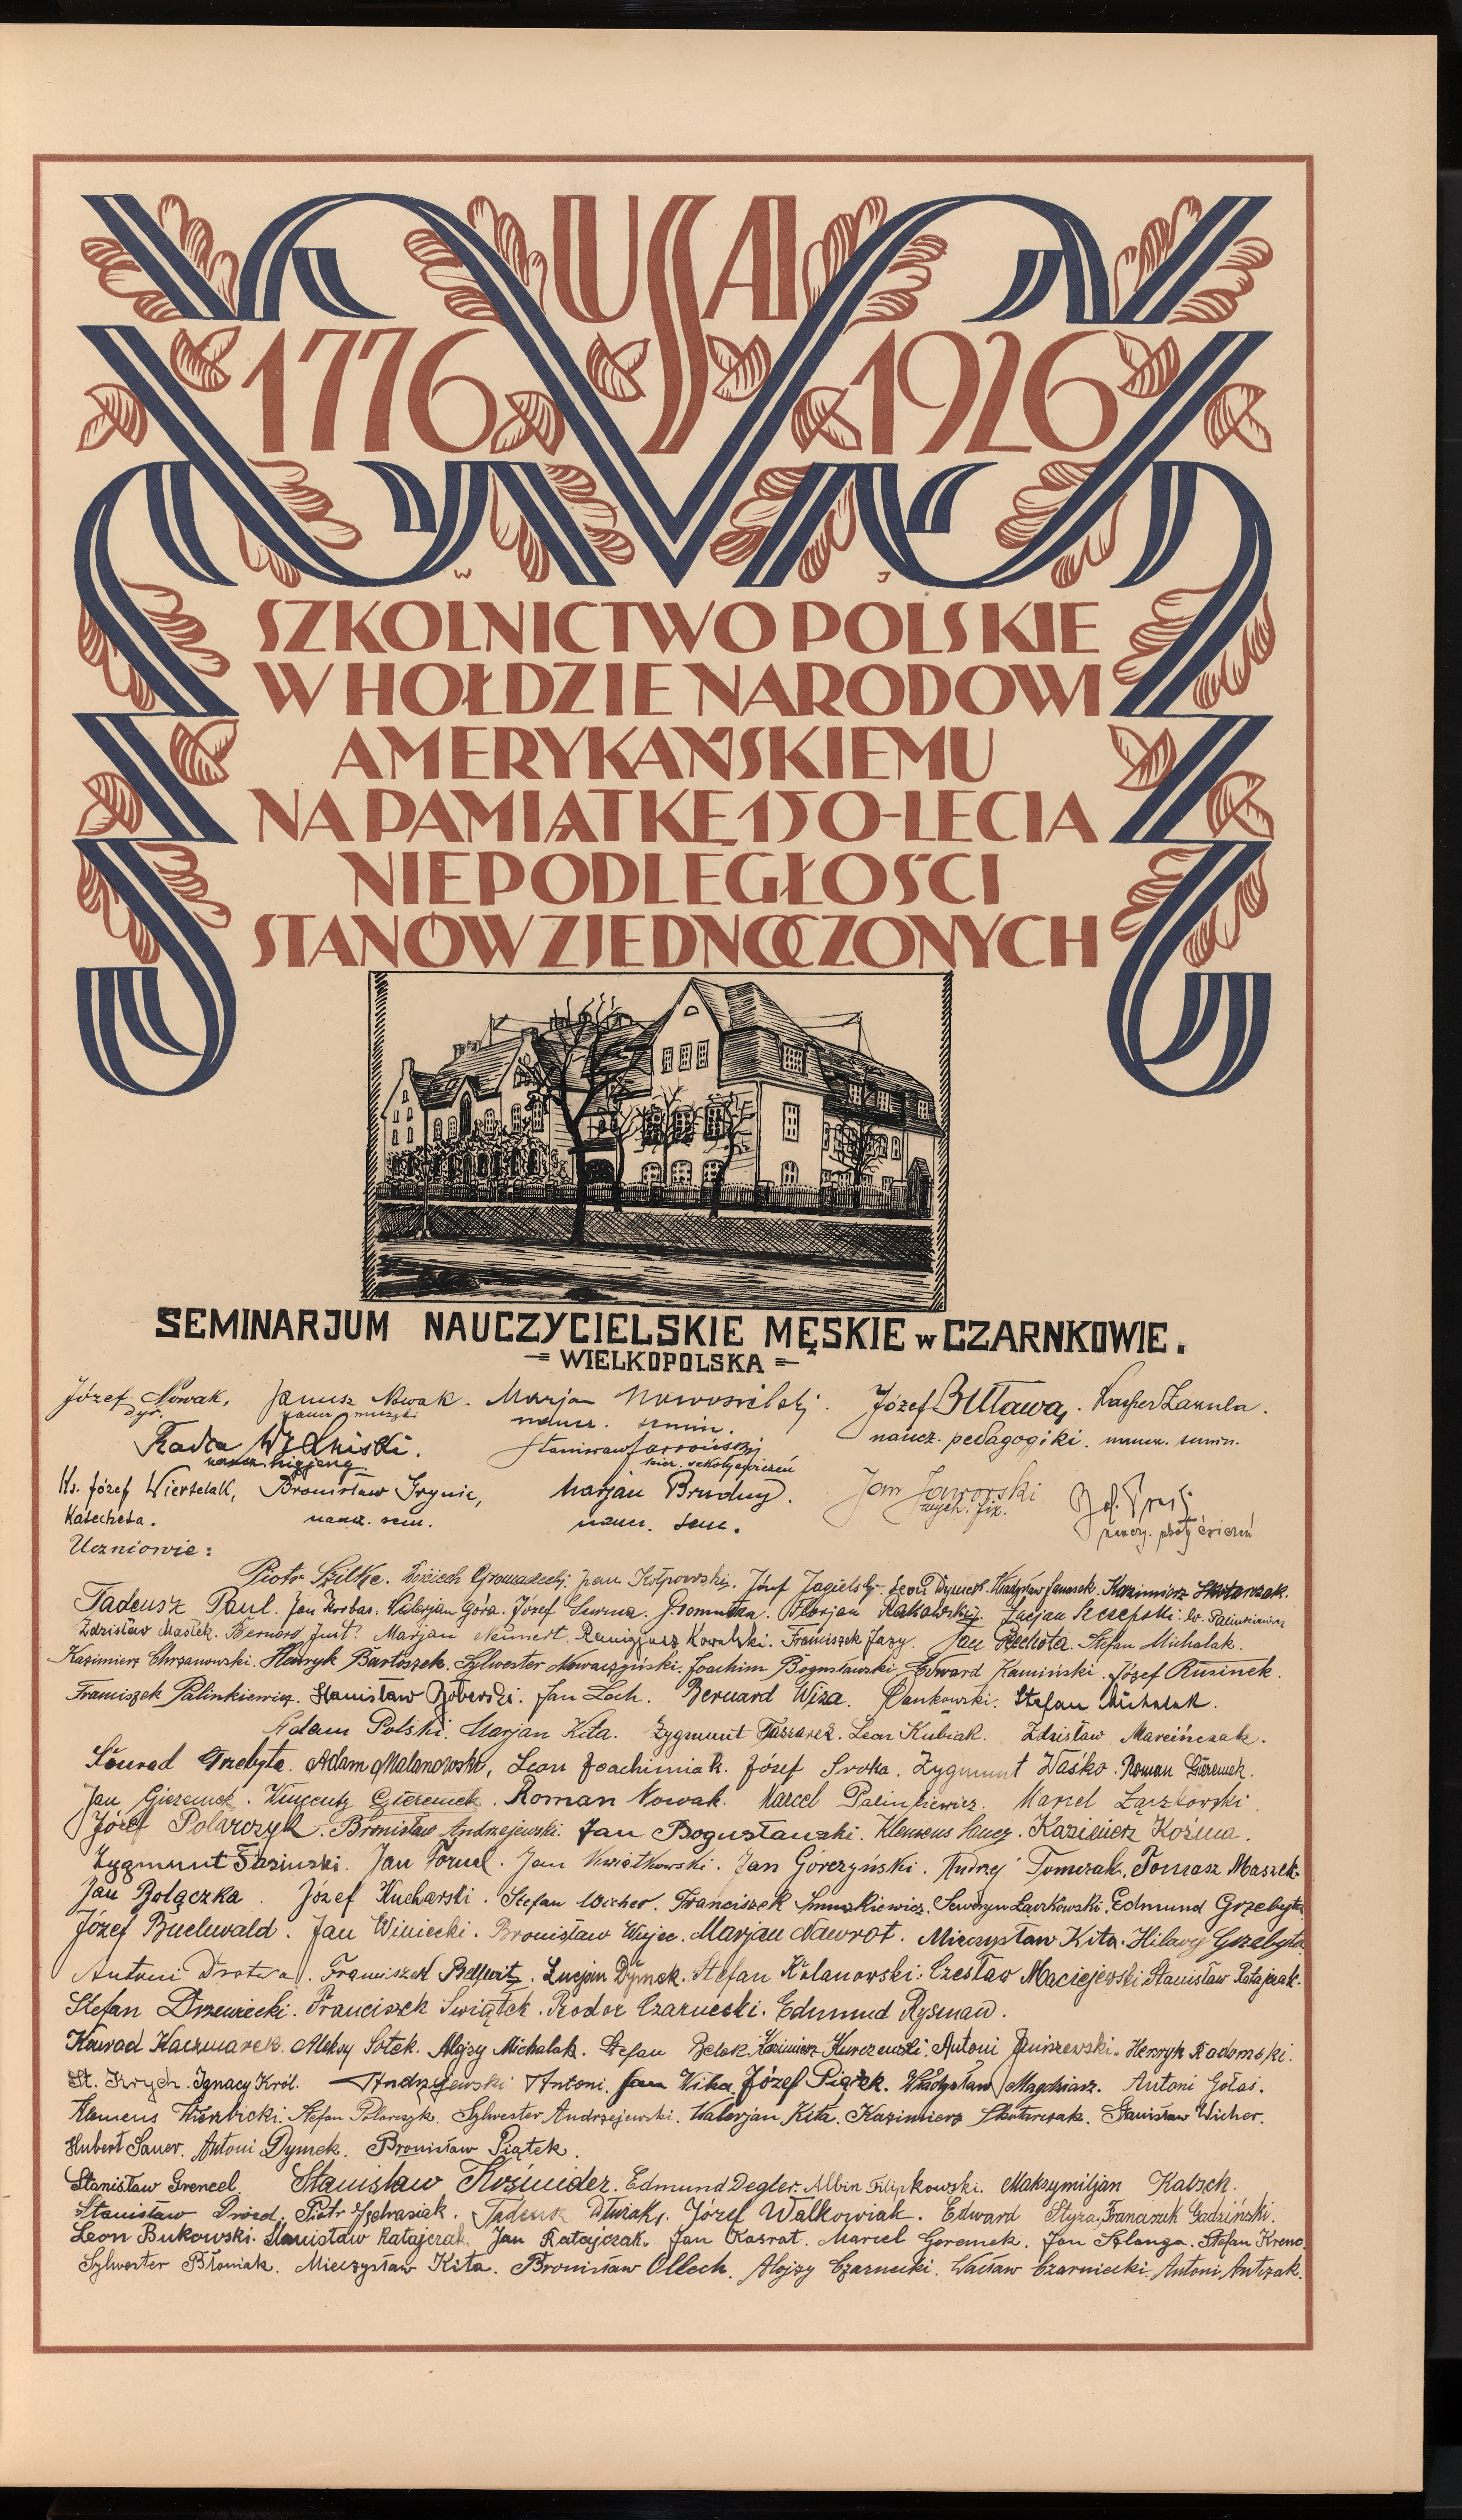 USA
1776 1926
W J
SZKOLNICTWO POLSKIE
W HOŁDZIE NARODOWI
AMERYKAŃSKIEMU
NA PAMIĄTKĘ 150-LECIA
NIEPODLEGŁOŚCI
STANÓW ZJEDNOCZONYCH
SEMINARJUM NAUCZYCIELSKIE MĘSKIE w CZARNKOWIE.
WIELKOPOLSKA
Józef Nowak, Janusz Nowak. Marjan Józef Kacper
dyr. naucz. muzyki naucz. semin. naucz. pedagogiki. naucz. semin.
Radca
naucz. higjeny Stanisław kier. szkoły ćwiczeń
Ks. Józef Bronisław Marjan Brudny. Jan Jaworski
Katecheta. naucz. sem. naucz. sem. wych. fiz. szkoły ćwiczeń
Uczniowie:
Piotr Szilke. Jan Józef Jagielski. Leon Dymek. Władysław Janasek. Kazimierz Skotarczak.
Tadeusz Paul. Jan Walerjan Góra. Józef Florjan Rakowski. Lucjan Szczepski. Palinkiewicz
Zdzisław Masłek. Bernard Just. Marjan Neumert. Remigjusz Kowalski. Franciszek Jazy. Jan Rechota. Stefan Michalak.
Kazimierz Chrzanowski. Henryk Bartoszek. Sylwester Nowaczyński. Joachim Bogusławski. Edward Kamiński. Józef Rusinek.
Franciszek Palinkiewicz. Stanisław Jan Loch. Bernard Wiza. Pankowski. Stefan Michalak.
Adam Polski. Marjan Kita. Zygmunt Leon Kubiak. Zdzisław Marcińczak.
Konrad Grzebyta. Adam Malanowski, Leon Joachimiak. Józef Sroka. Zygmunt Waśko. Roman Gieremek.
Jan Gieremek. Wincenty Gieremek. Roman Nowak. Marcel Palinkiewicz. Marcel Łączkowski.
Józef Polarczyk. Bronisław Andrzejewski. Jan Bogusławski. Klemens Kazimierz Koźma.
Zygmunt Jasiński. Jan Jan Kwiatkowski. Jan Górczyński. Andrzej Tomczak. Tomasz Maszek.
Jan Bolączka. Józef Kucharski. Stefan Wicher. Franciszek Smuszkiewicz. Seweryn Łączkowski. Edmund Grzebyta
Józef Buchwald. Jan Winiecki. Bronisław Wujec. Marjan Nawrot. Mieczysław Kita. Hilary Grzebyta
Antoni Drotwa. Franciszek Lucjan Dymek. Stefan Kolanowski. Czesław Maciejewski. Stanisław Ratajczak.
Stefan Drzewiecki. Franciszek Świątek. Teodor Czarnecki. Edmund Rysman.
Konrad Kaczmarek. Aleksy Sołek. Alojzy Michalak. Stefan Belak. Kazimierz Antoni Henryk Radomski.
St. Krych. Ignacy Król. Andrzejewski Antoni. Jan Wika. Józef Piątek. Władysław Magdziarz. Antoni Gołaś.
Klemens Wierzbicki. Stefan Polarczyk. Sylwester Andrzejewski. Walerjan Kita. Kazimierz Skotarczak. Stanisław Wicher.
Hubert Sauer. Antoni Dymek. Bronisław Piątek.
Stanisław Grencel. Stanisław Kośmider. Edmund Degler. Albin Filipkowski. Maksymiljan Kabsch.
Stanisław Drózd. Piotr Tadeusz Józef Walkowiak. Edward Styza. Franciszek Godziński.
Leon Bukowski. Stanisław Ratajczak. Jan Ratajczak. Jan Kasrat. Marcel Geremek. Jan Szlanga. Stefan Krenc.
Sylwester Błoniak. Mieczysław Kita. Bronisław Ollech. Alojzy Czarnecki. Wacław Czarniecki. Antoni Antczak.